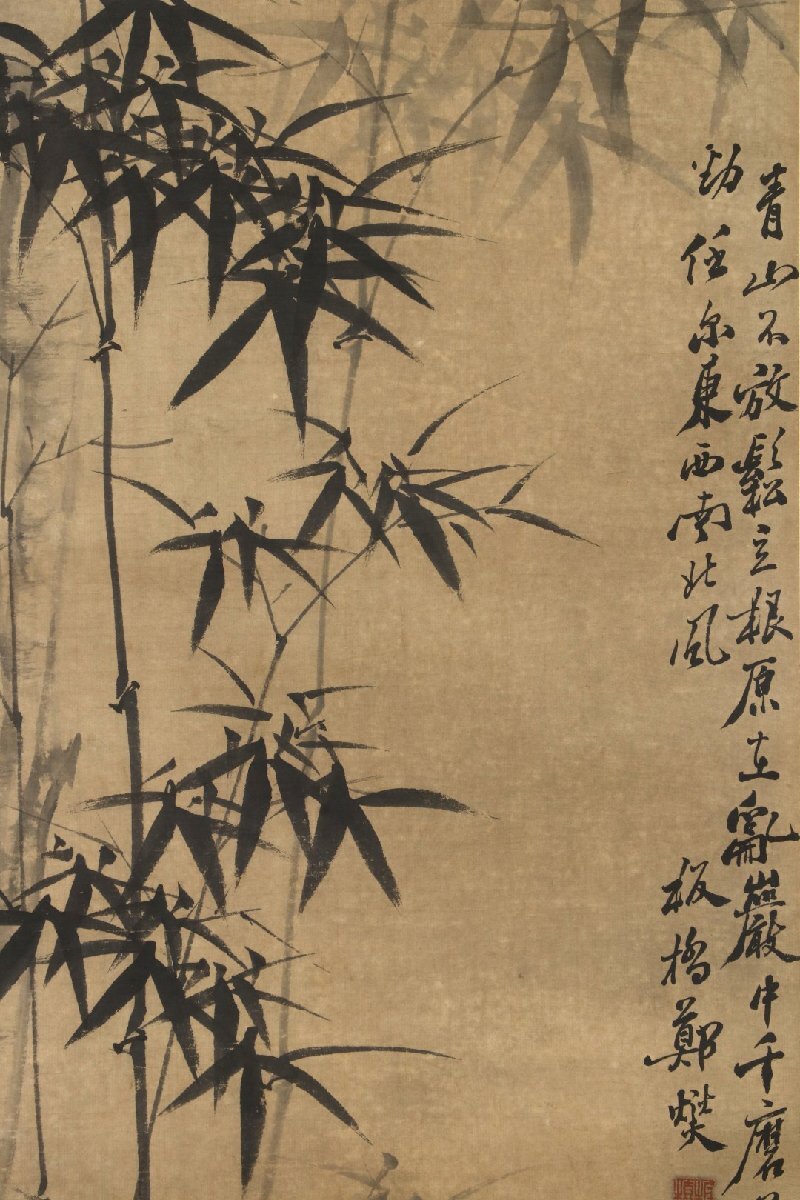 青山不放鬆立根原在亂巖中千磨
勁任尔東西南北風
板橋鄭燮